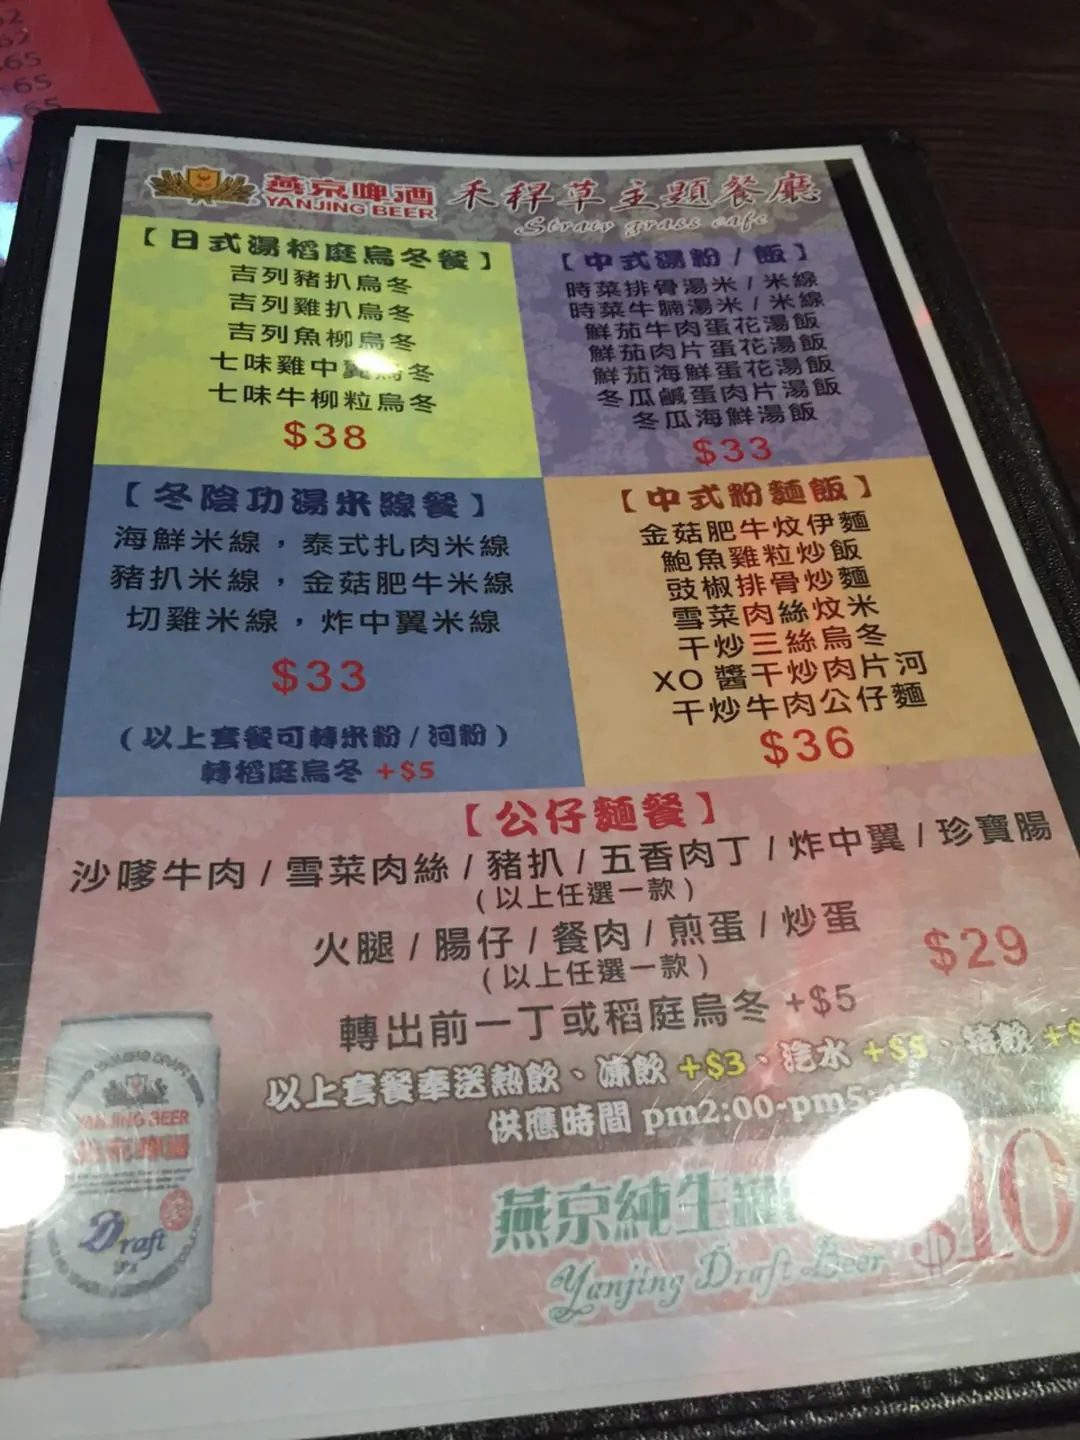 62
62
65
65
65
燕京啤酒
YANJING BEER
禾稈草主題餐廳
Straw grass cafe
【日式湯稻庭烏冬餐】
吉列豬扒烏冬
吉列雞扒烏冬
吉列魚柳烏冬
七味雞中翼烏冬
七味牛柳粒烏冬
$38
【中式湯粉/飯】
時菜排骨湯米/米線
時菜牛腩湯米/米線
鮮茄牛肉蛋花湯飯
鮮茄肉片蛋花湯飯
鮮茄海鮮蛋花湯飯
冬瓜鹹蛋肉片湯飯
冬瓜海鮮湯飯
$33
【冬陰功湯米線餐】
海鮮米線，泰式扎肉米線
豬扒米線，金菇肥牛米線
切雞米線，炸中翼米線
$33
(以上套餐可轉米粉/河粉)
轉稻庭烏冬+$5
【中式粉麵飯】
金菇肥牛炆伊麵
鮑魚雞粒炒飯
豉椒排骨炒麵
雪菜肉絲炆米
干炒三絲烏冬
XO醬干炒肉片河
干炒牛肉公仔麵
$36
【公仔麵餐】
沙嗲牛肉/雪菜肉絲/豬扒/五香肉丁/炸中翼/珍寶腸
(以上任選一款)
火腿/腸仔/餐肉/煎蛋/炒蛋
(以上任選一款)
$29
轉出前一丁或稻庭烏冬+$5
以上套餐奉送熱飲、凍飲+$3、汽水+$5、特飲+$
供應時間 pm2:00-pm5:
YANJING BEER
燕京啤酒
Draft
燕京純生
Yanjing Draft Beer
$10